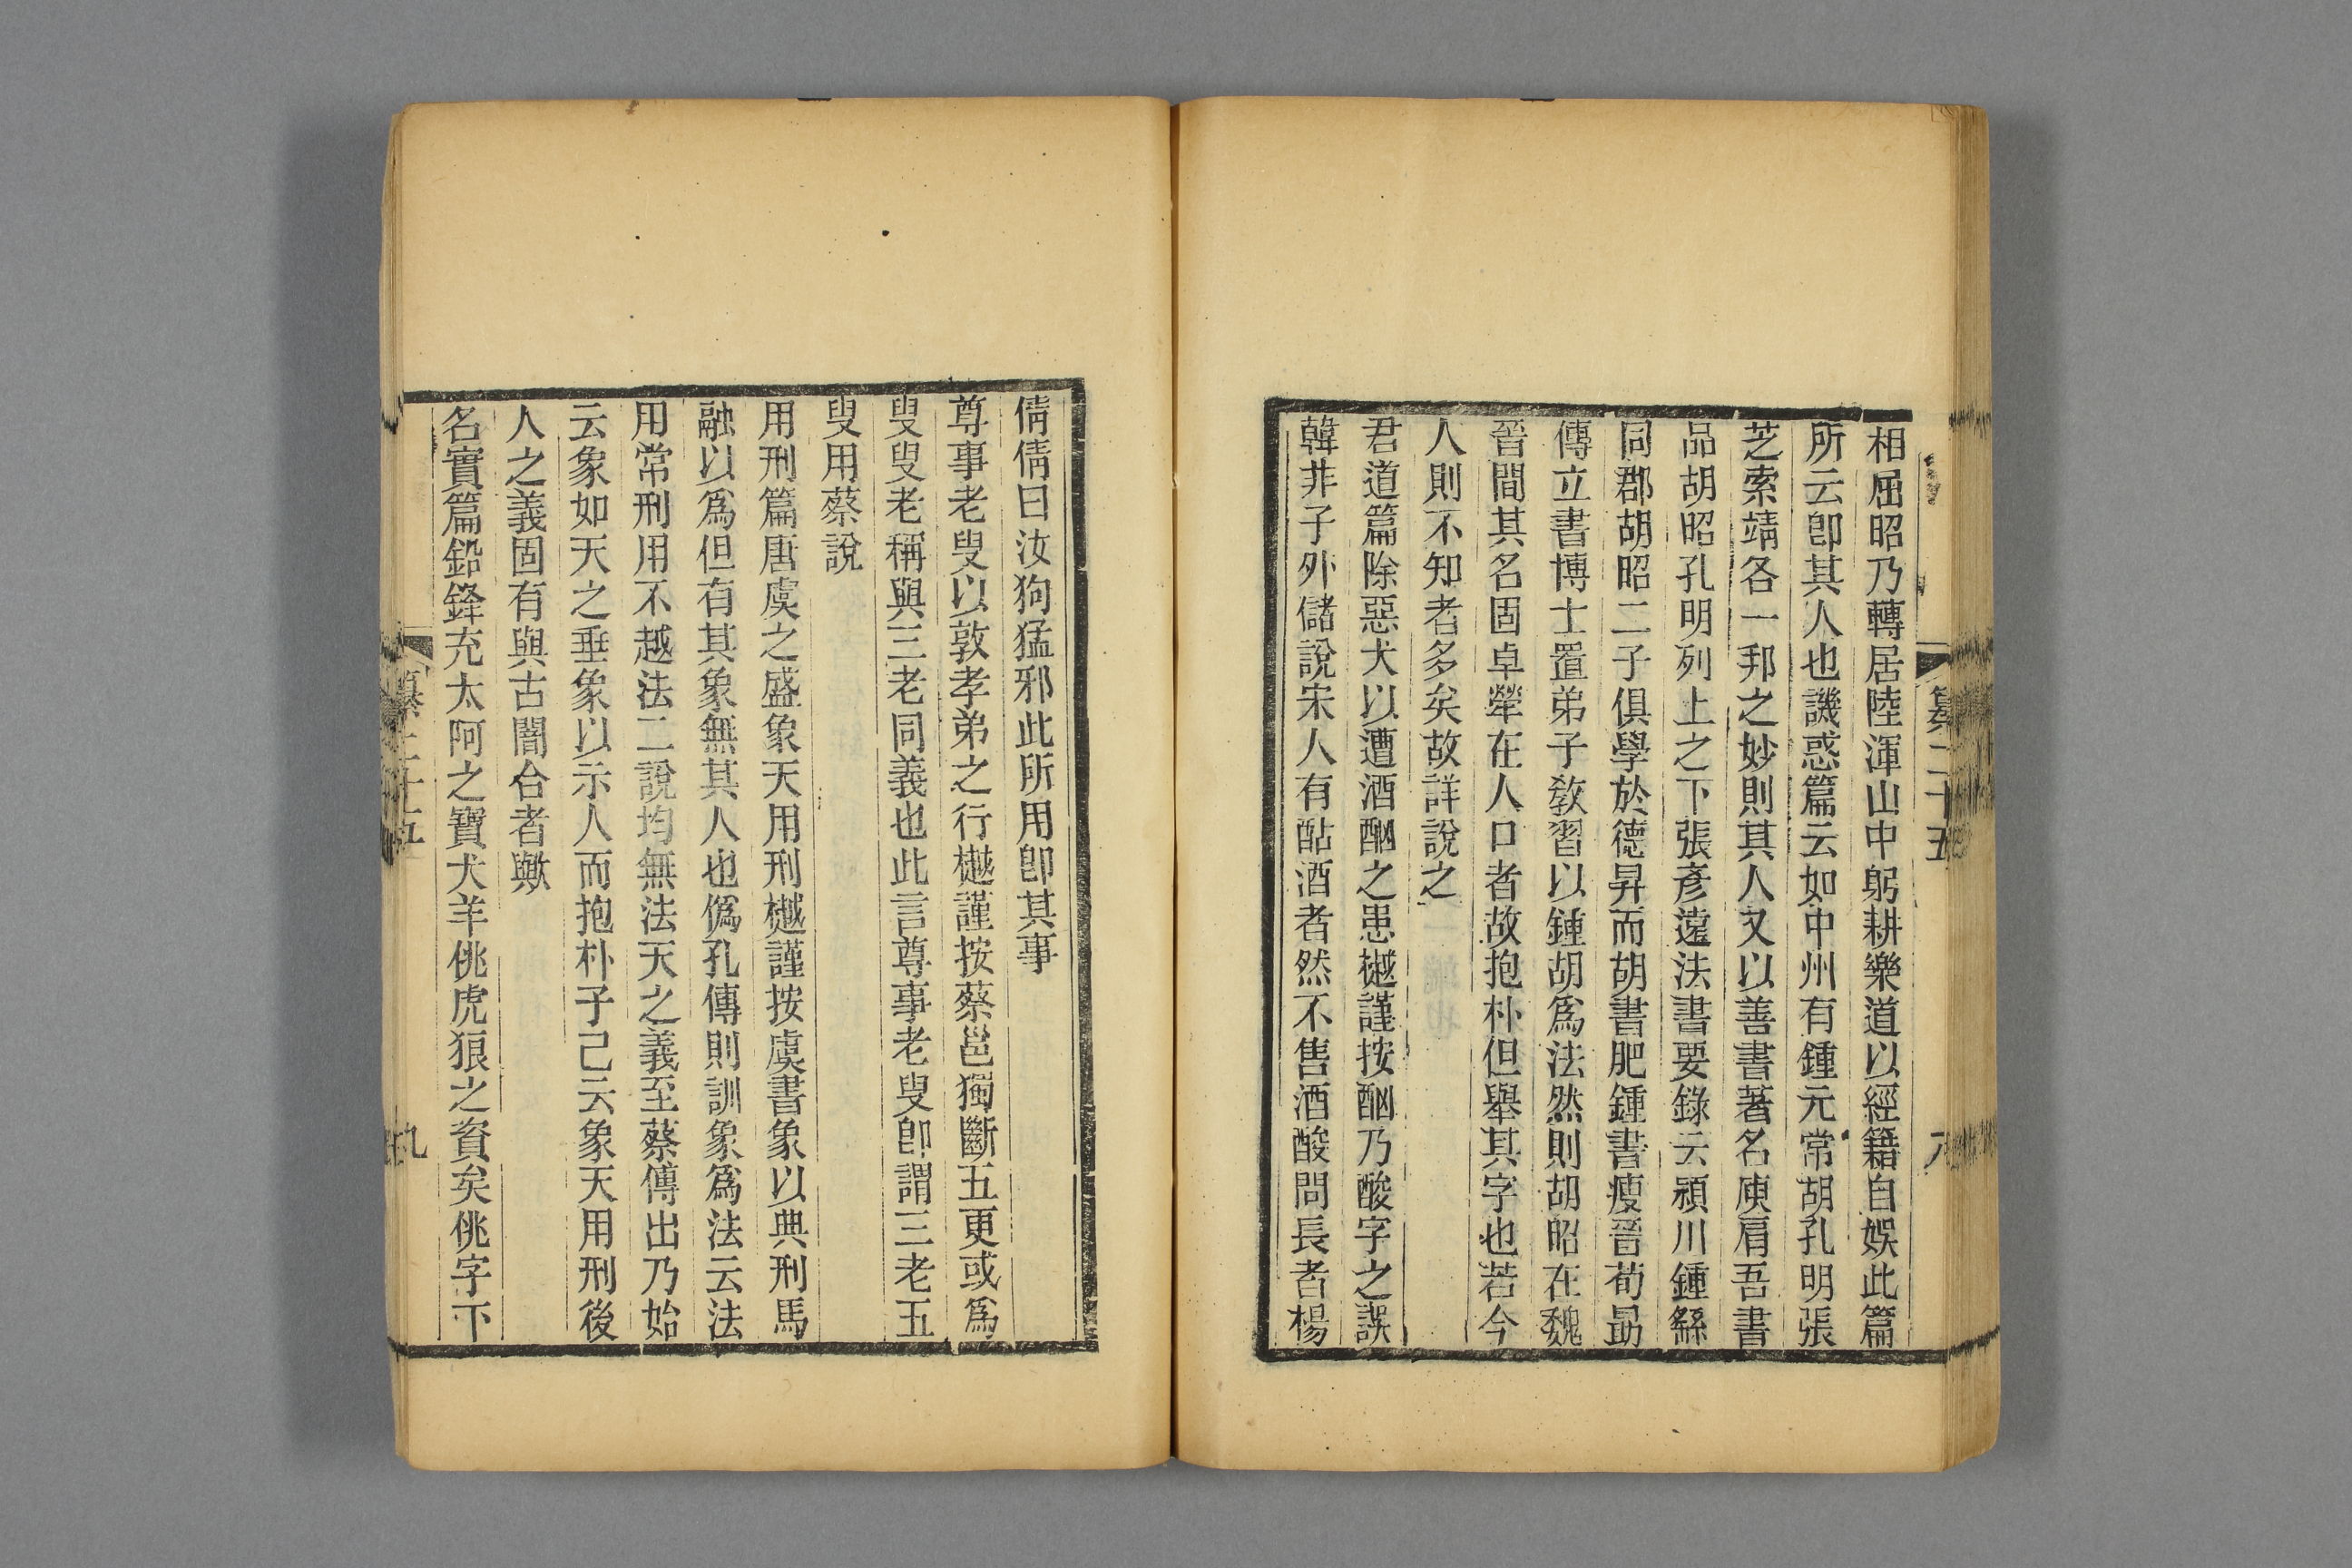 纂二十五
八
相屈昭乃轉居陸渾山中躬耕樂道以經籍自娛此篇
所云卽其人也譏惑篇云如中州有鍾元常胡孔明張
芝索靖各一邦之妙則其人又以善書著名庾肩吾書
品胡昭孔明列上之下張彥遠法書要錄云潁川鍾繇
同郡胡昭二子俱學於德昇而胡書肥鍾書瘦晉荀勗
傳立書博士置弟子敎習以鍾胡爲法然則胡昭在魏
晉間其名固卓犖在人口者故抱朴但舉其字也若今
人則不知者多矣故詳說之
君道篇除惡犬以遭酒酗之患樾謹按酗乃酸字之誤
韓非子外儲說宋人有酤酒者然不售酒酸問長者楊
倩倩曰汝狗猛邪此所用卽其事
尊事老叟以敦孝弟之行樾謹按蔡邕獨斷五更或爲
叟叟老稱與三老同義也此言尊事老叟卽謂三老五
叟用蔡說
用刑篇唐虞之盛象天用刑樾謹按虞書象以典刑馬
融以爲但有其象無其人也僞孔傳則訓象爲法云法
用常刑用不越法二說均無法天之義至蔡傳出乃始
云象如天之垂象以示人而抱朴子已云象天用刑後
人之義固有與古闇合者歟
名實篇鉛鋒充太阿之寶犬羊佻虎狼之資矣佻字下
纂二十五
九